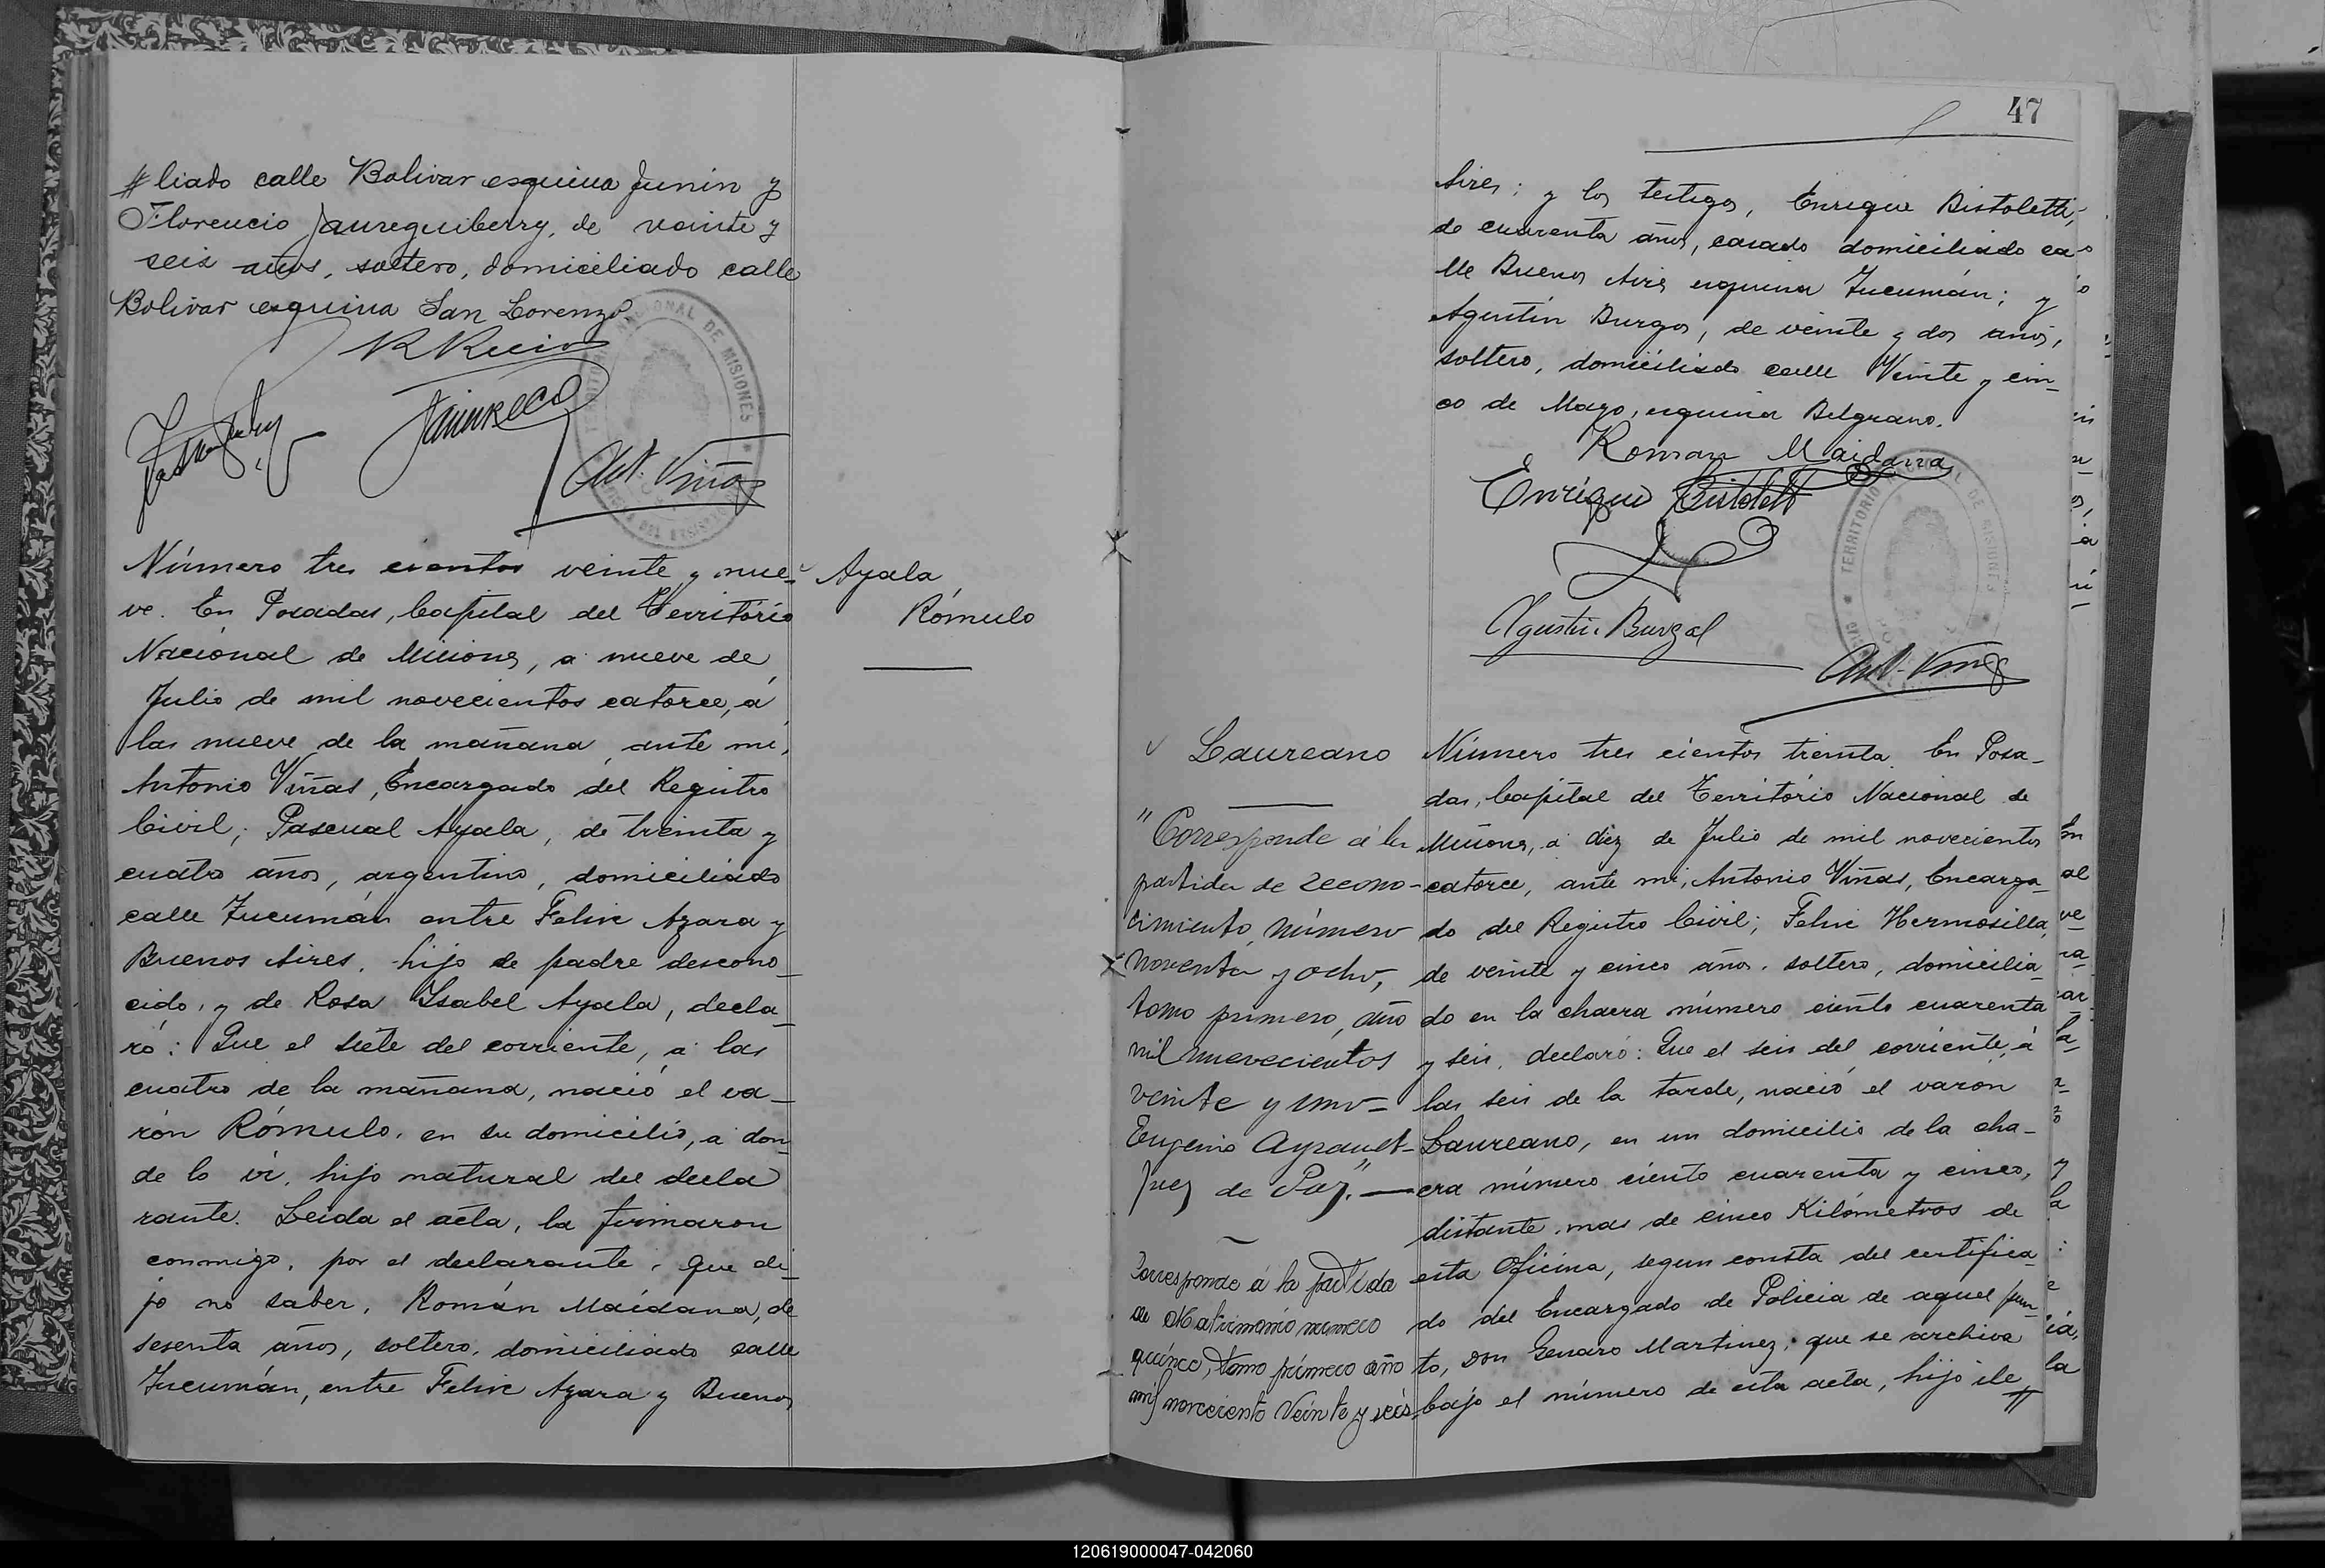 #liado calle Bolivar esquina Junin y
Florencio Jaureguiberry, de veinte y
seis años, soltero, domiciliado calle
Bolivar esquina San Lorenzo.
Ant. Viñas
Número tres cientos veinte y nue-
ve. En Posadas, Capital del Território
Nacional de Misiones, a nueve de
Julio de mil novecientos catorce, á
las nueve de la mañana, ante mi,
Antonio Viñas, Encargado del Registro
Civil; Pascual Ayala, de treinta y
cuatro años, argentino, domiciliado
calle Tucumán entre Felix Azara y
Buenos Aires, hijo de padre descono-
cido, y de Rosa Ysabel Ayala, decla-
ró: Que el siete del corriente, a las
cuatro de la mañana, nació el va-
rón Rómulo, en su domicilio, a don-
de lo vi, hijo natural del decla
rante. Leida el acta, la firmaron
conmigo, por el declarante, que di-
jo no saber, Román Maidana, de
sesenta años, soltero, domiciliado calle
Tucumán, entre Felix Azara y Buenos
Ayala
Rómulo
47
Aires; y los testigos, Enrique Bistoletti,
de cuarenta años, casado domiciliado ca-
lle Buenos Aires esquina Tucumán; y
Agustín Burgos, de veinte y dos años,
soltero, domiciliado calle Veinte y cin-
co de Mayo, esquina Belgrano.
Roman Maidana
Enrique Bistoletti
Agustin Burgal
Ant. Viñas
TERRITORIO NACIONAL DE MISIONES
Laureano
"Corresponde á la
partida de recono-
cimiento número
noventa y ocho,
tomo primero, año
mil nuevecientos
veinte y uno-
Eugenio Ayrault-
Juez de Paz."
Corresponde á la partida
de Matrimonio numero
quince, tomo primero año
mil novecientos veinte y seis
Número tres cientos treinta. En Posa-
das, Capital del Território Nacional de
Misiones, a diez de Julio de mil novecientos
catorce, ante mi, Antonio Viñas, Encarga-
do del Registro Civil; Felix Hermosilla,
de veinte y cinco años, soltero, domicilia-
do en la chacra número ciento cuarenta
y seis, declaró: Que el seis del corriente, á
las seis de la tarde, nació el varon
Laureano, en un domicilio de la cha-
cra número ciento cuarenta y cinco,
distante, mas de cinco Kilómetros de
esta Oficina, segun consta del certifica-
do del Encargado de Policia de aquel pun-
to, Don Genaro Martinez; que se archiva
bajo el número de esta acta, hijo de #
120619000047-042060